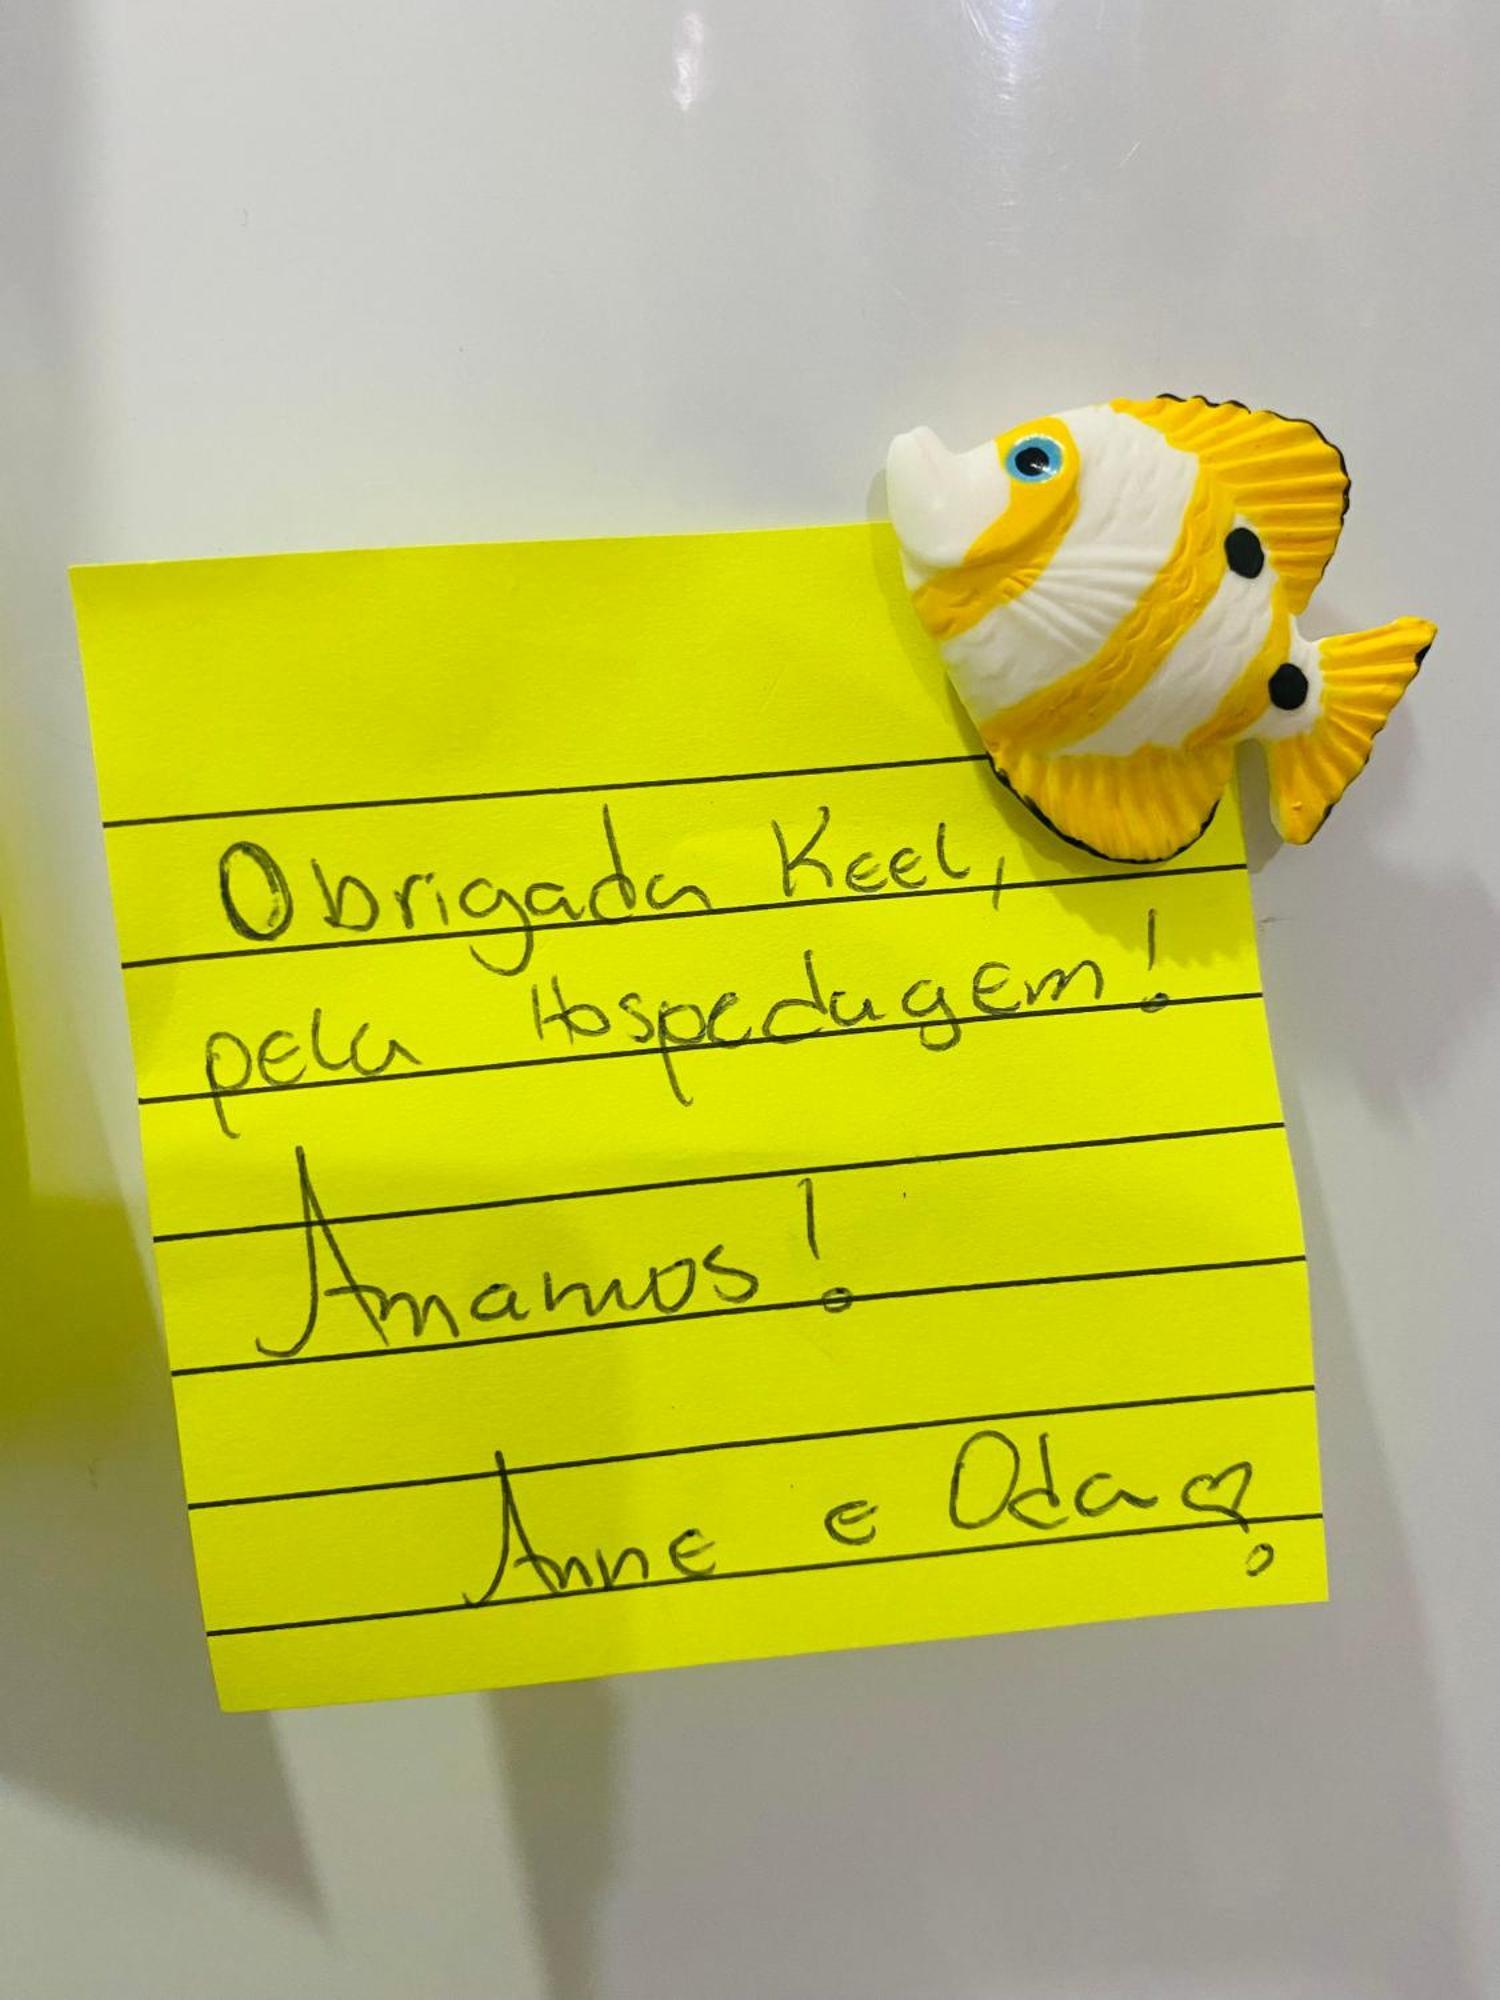 Obrigada Keel,
pela Hospedagem!
Amamos!
Anne e Oda